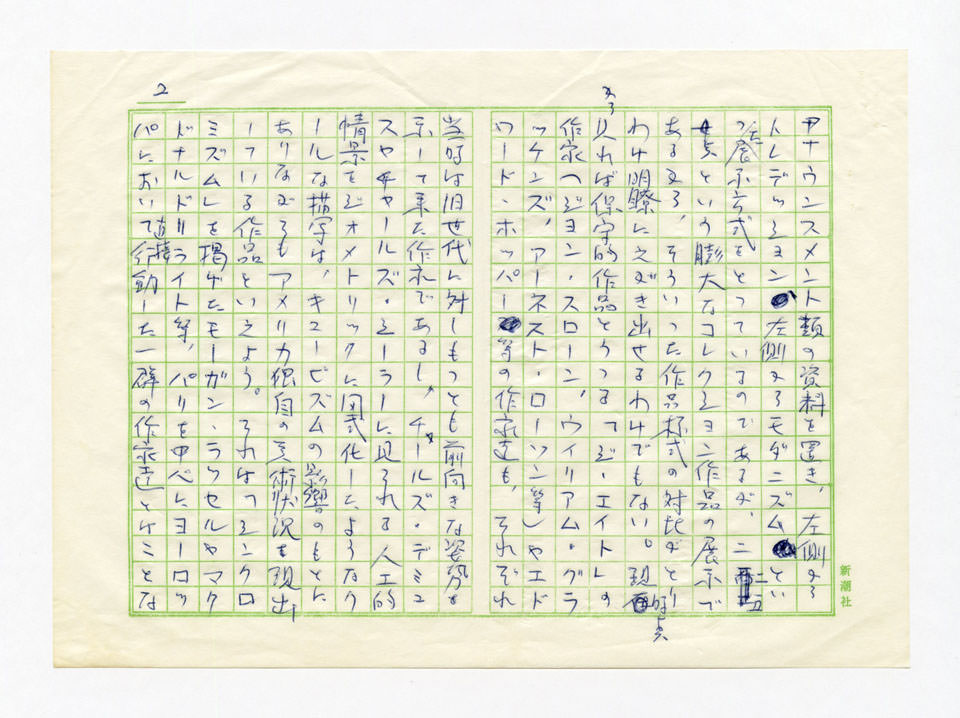 2
アナウンスメント類の資料を置き、左側よ
トレデッション 左側よりモダニズムとい
った展示方式をとっているのであるが、二
点という膨大なコレクション作品の展示で
ある為、そういった作品様式の対比がとり
わけ明瞭にえがき出せるわけでもない。現時点
より見れば保守的作品とうつる「ジ・エイト」の
作家(ジョン・スローン、ウイリアム・グラ
ッケンズ、アーネスト・ローソン等)やエド
ワード・ホッパー等の作家達も、それぞれ
当時は旧世代に対しもっとも前向きな姿勢を
示して来た作家であるし、チャールズ・デミュ
スやチャールズ・シーラーに見られる人工的
情景をジオメトリックに図式化したようなク
ールな描写は、キュービズムの影響のもとに
ありながらもアメリカ独自の美術状況を現出
している作品といえよう。それは「シンクロ
ミズム」を掲げたモーガン・ラッセルやマク
ドナルド・ライト等、パリを中心にヨーロッ
パにおいて直接行動した一群の作家達とはことな
新潮社